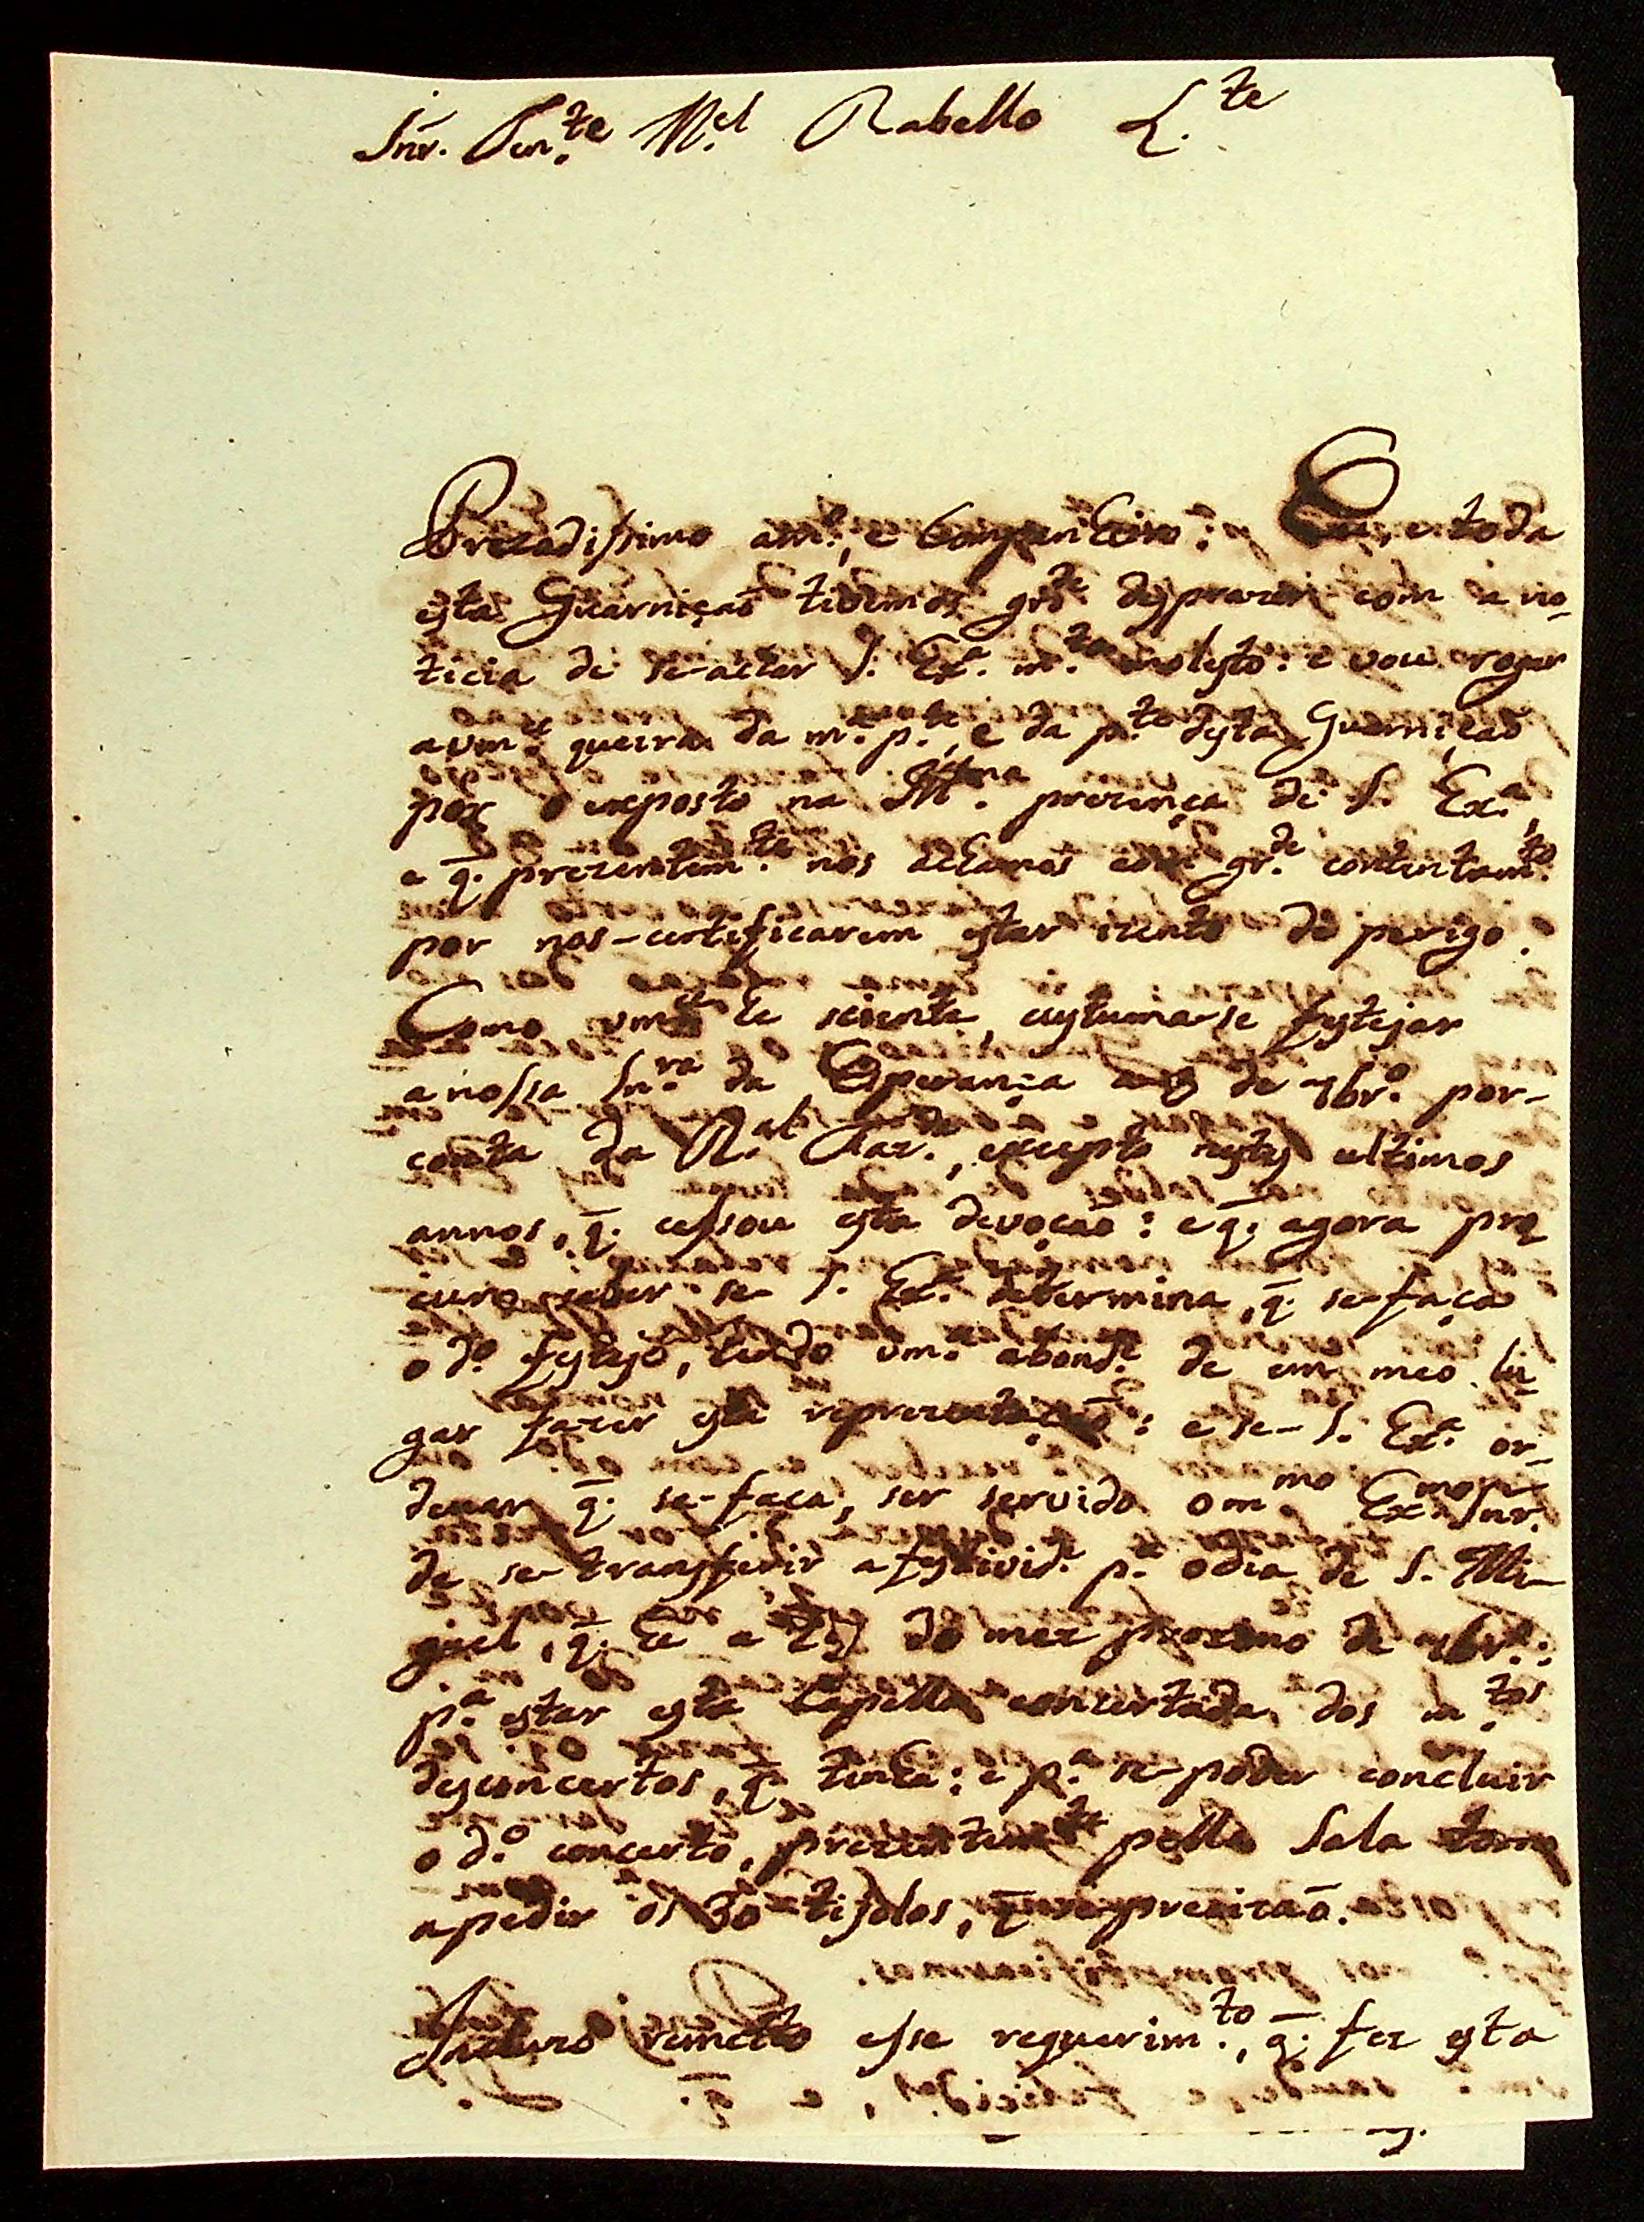 Snr. Ten.te M.el Rabello L.te
Prezadissimo am.o, e Companheiro: Eu, e toda
esta Guarniçaõ tivemos gr.de desprazer com a no-
ticia de se-achar S. Ex.a m.to molesto: e vou rogar
avm.ce queira da m.a p.te, e da p.te desta Guarniçaõ
por o exposto na Ill.ma prezença de S. Ex.a,
e q̃. prezentem.te nos achamos com gr.de contentam.to
por nos-certificarem estar izento de perigo.
Como vm.ce he sciente, custuma-se festejar
a nossa Sn.ra da Esperança a 8 de 7br.o por-
conta da R.al Faz.da, excepto nestes ultimos
annos, q̃. cessou esta devoçaõ: e q̃. agora pro
curo saber se S. Ex.a determina, q̃. se-faça
o d.o festejo, tendo vm.ce abond.e de em meo lu
gar fazer esta reprezentaçaõ: e se-S. Ex.a or-
denar q̃. se-faça, ser servido o mmo Ex.mo Snr.
de se-transferir a festivid.e p.a o dia de S. Mi-
guel, q̃. he a 29 do mez proximo de 7br.o:
p.a estar esta Capella concertada dos m.tos
desconcertos, q̃. tinha: e p.a se-poder concluir
o d.o concerto, prezentem.te pella Sala torno
apedir os 30 tijolos, q̃. se precizaõ.
Incluzo remetto esse requerim.to, q̃. fez esta